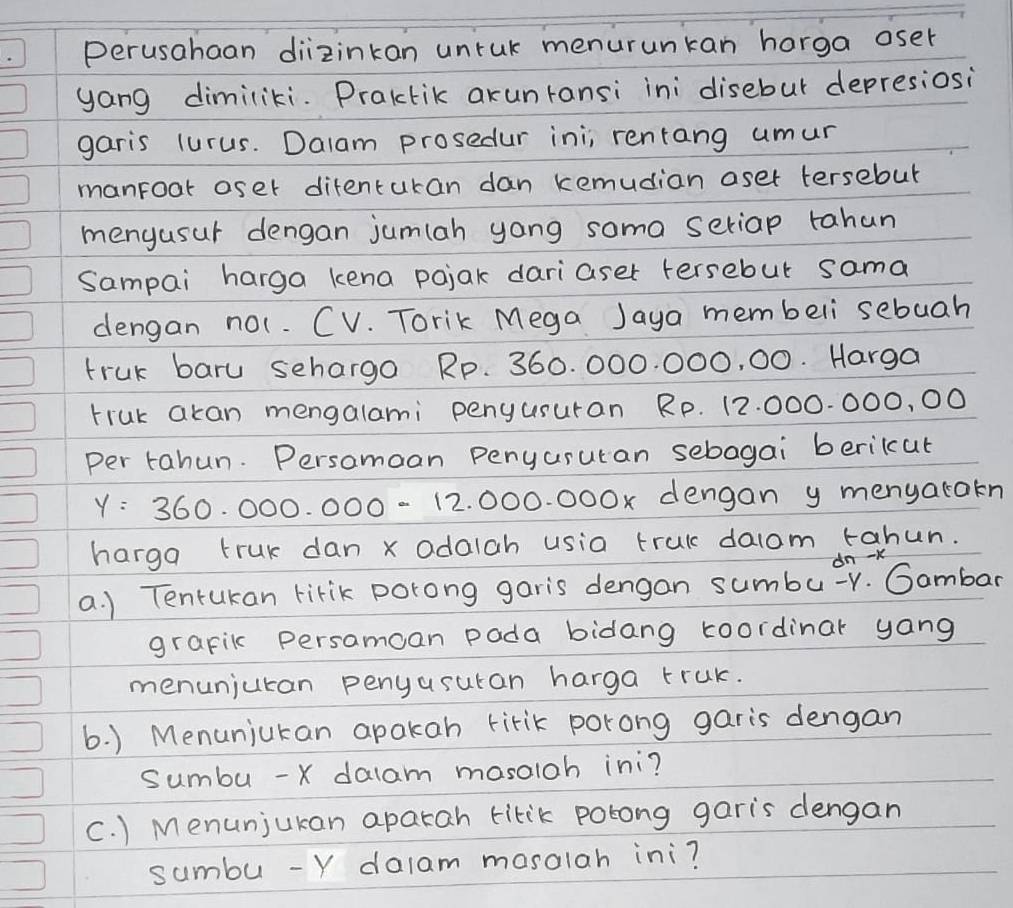 Perusahaan diizinkan untuk menurunkan harga aset
yang dimiliki. Praktik akuntansi ini disebut depresiasi
garis lurus. Dalam prosedur ini, rentang umur
manfaat aset ditentukan dan kemudian aset tersebut
menyusut dengan jumlah yang sama setiap tahun
Sampai harga kena pajak dari aset tersebut sama
dengan nol. CV. Torik Mega Jaya membeli sebuah
truk baru seharga Rp. 360.000.000,00. Harga
truk akan mengalami penyusutan Rp. 12.000.000,00
Per tahun. Persamaan Penyusutan sebagai berikut
Y: 360.000.000 - 12.000.000x dengan y menyatakn
harga truk dan x adalah usia truk dalam tahun.
a.) Tentukan titik potong garis dengan sumbu dn -x -Y. Gambar
grafik Persamaan pada bidang koordinat yang
menunjukan penyusutan harga truk.
b.) Menunjukan apakah titik potong garis dengan
Sumbu -X dalam masalah ini?
C.) Menunjukan apakah titik potong garis dengan
sumbu - Y dalam masalah ini?